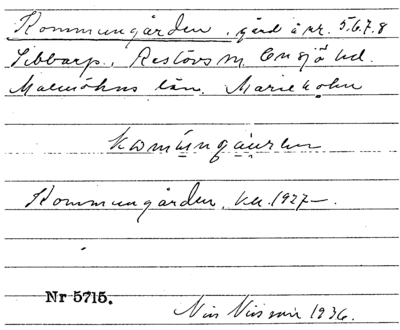 Kommungården, gård å nr. 5.6.7.8
Sibbarp, Restövs m. Onsjö hd.
Malmöhus län. Marieholm
Kommungården, ku. 1927–.
Nr 5715.
Nils Nilsson 1936.